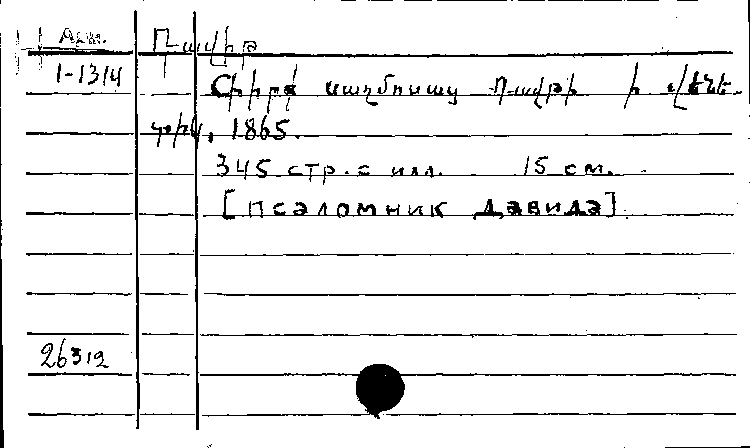 Арм. Դավիթ
1-1314 Գիրք սաղմոսաց Դավթի ի վենե-
տիկ, 1865.
345 стр. с илл. 15 см.
[псаломник давида]
26312